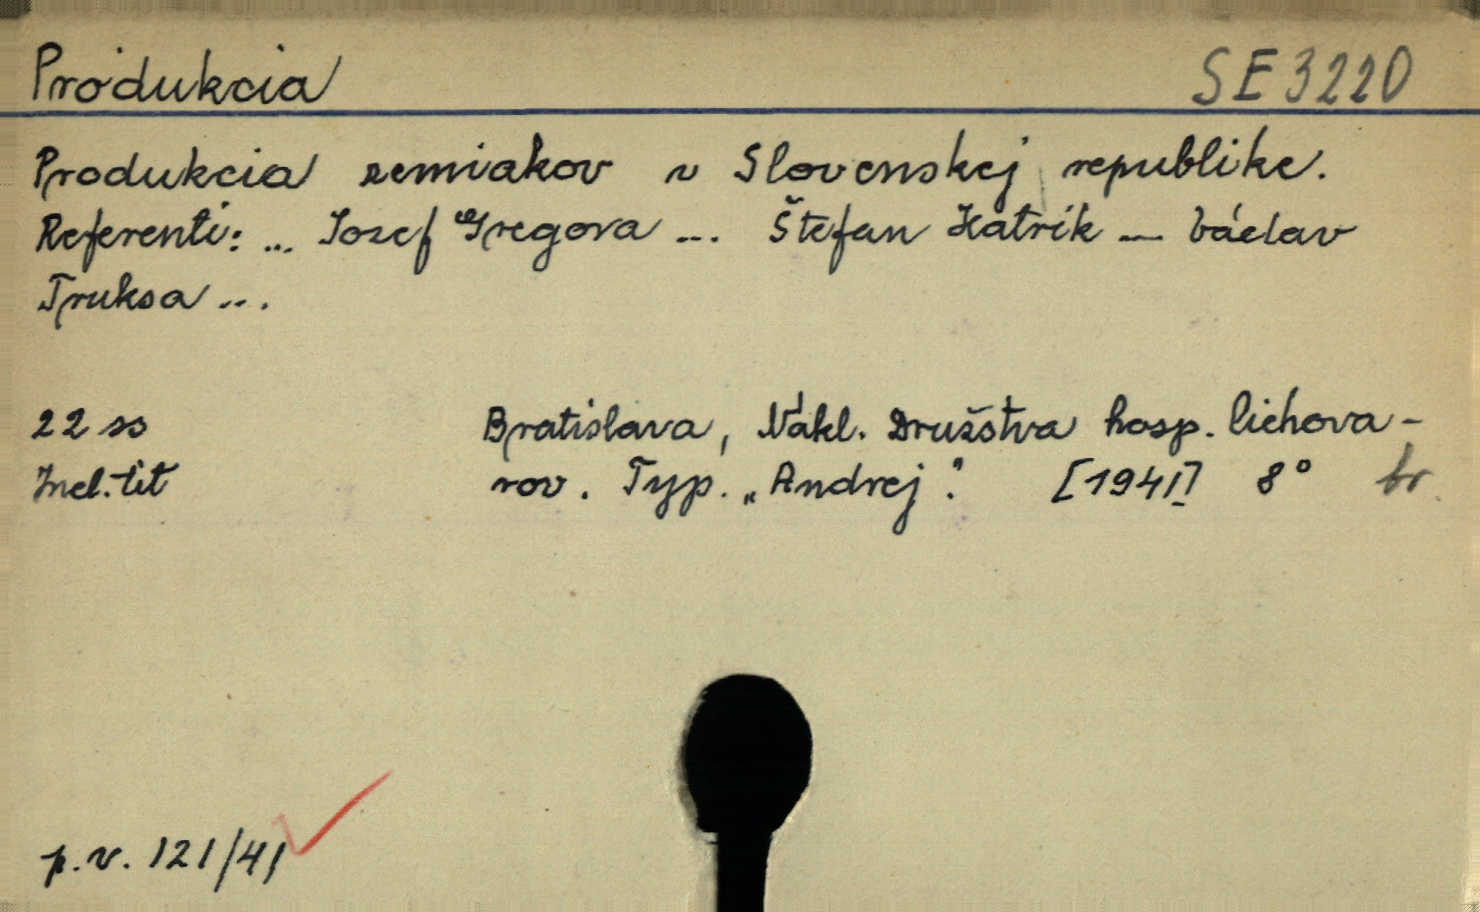 Produkcia SE 3220
Produkcia zemiakov v Slovenskej republike.
Referenti: ... Jozef Gregova ... Štefan Katrik ... Václav
Truksa ...
22 ss Bratislava, Nákl. Družstva hosp. liehova-
Incl. tit rov. Typ. „Andrej". [1941] 8° br.
p.v. 121/41